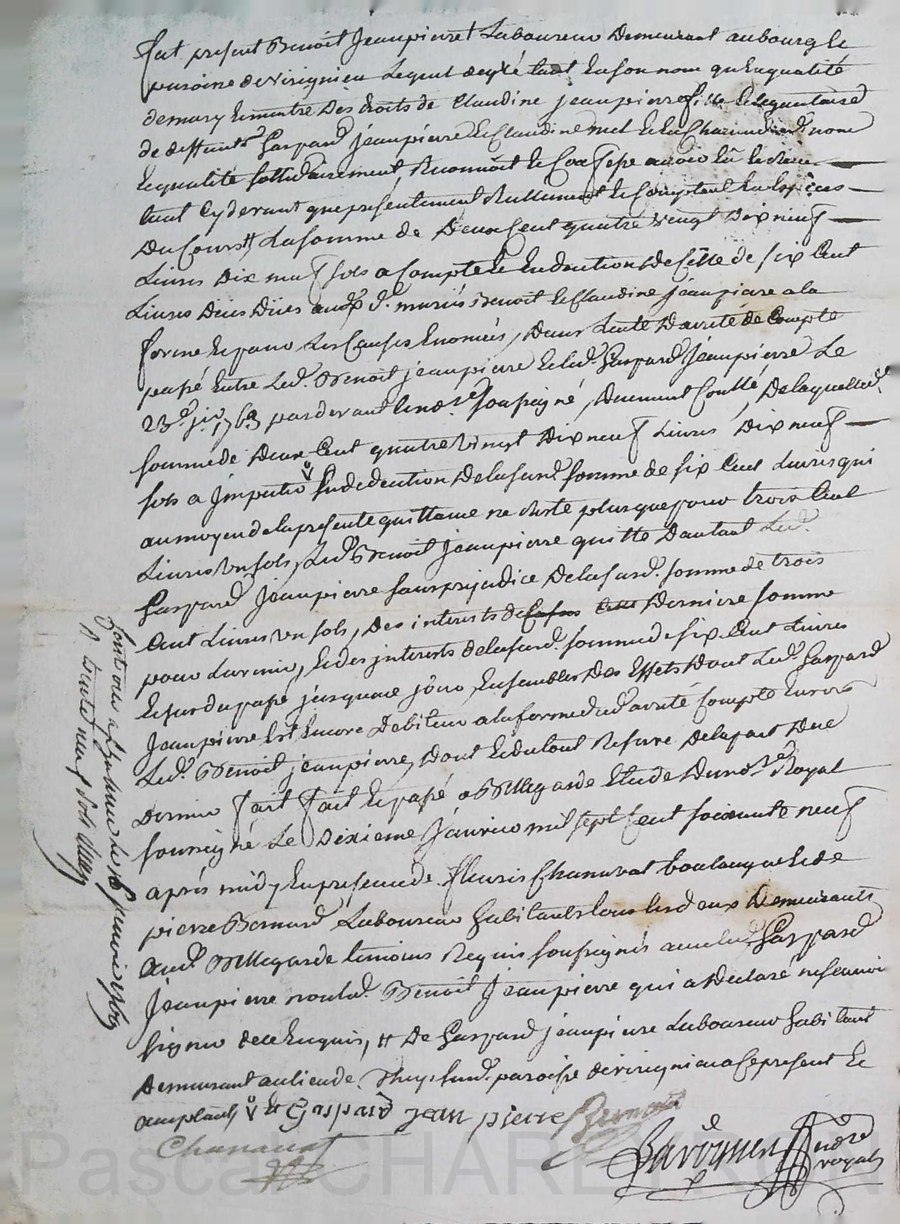 fut present Benoit Jeanpierre Laboureur Demeurant au bourg le
paroisse de virignieu lequel tant en son nom qu'en qualité
de mary Et maitre Des droits de Claudine jeanpierre fille
de deffunts Gaspard jeanpierre Et Claudine nom
Et qualité sollidairement Reconnoit Et Confesse avoir
tant Cy devant que présentement Réellement Et Comptant En Espèces
Du Cours # La somme de Deux Cent quatre vingt Dix neuf
Livres Dix neuf sols a Compte Et En deduction De Celle de six Cent
Livres Deües aud. d. mariés Benoit Et Claudine jeanpierre a la
forme Et pour Les Causes Enoncées Dans L'acte D'arreté de Compte
passé Entre Led. Benoit jeanpierre Et Led. Gaspard Jeanpierre Le
23e 1763 pardevant Le nore soussigné, Duement Conllé, De laquelle d.
somme de Deux Cent quatre vingt Dix neuf Livres Dix neuf
sols a Imputer En deduction De la susd. somme de six Cent Livres qui
au moyen de la présente quittance ne Reste plus que pour trois Cent
Livres Un sols, Led. Benoit Jeanpierre quitte D'autant Led.
Gaspard Jeanpierre sans prejudice De la susd. somme de trois
Cent Livres un sols, Des interests de Derniere somme
pour L'avenir, Et des interests de la susd. somme de six Cent Livres
Et par du passé jusqu'a ce jour, Ensembles Des Effets Dont Led. Gaspard
Jeanpierre Est Encore Debiteur a la forme dud. arreté Compte Envers
Led. Benoit jeanpierre, Dont Et Du tout Reserve De la part Du d.
Dernier fait Et passé a Bellegarde Etude Du nore Royal
soussigné Le Dixieme Janvier mil sept Cent soixante neuf
après midy En presence de fleuris Chanavat boulanger Et de
pierre Bernard Laboureur habitants tous les deux Demeurants
aud. Bellegarde temoins Requis soussignés avec Led. Gaspard
Jeanpierre non Led. Benoit Jeanpierre qui a Declaré ne sçavoir
signer de ce Enquis, # De Gaspard jeanpierre Laboureur habitant
Demeurant au lieu de susd. paroisse de virignieu a ce present Et
acceptant Gaspard jean pierre Bernard
Chanavat
nore
royal
le 18 janvier 1769
R trente neuf sols
Pascal CHAREYRON